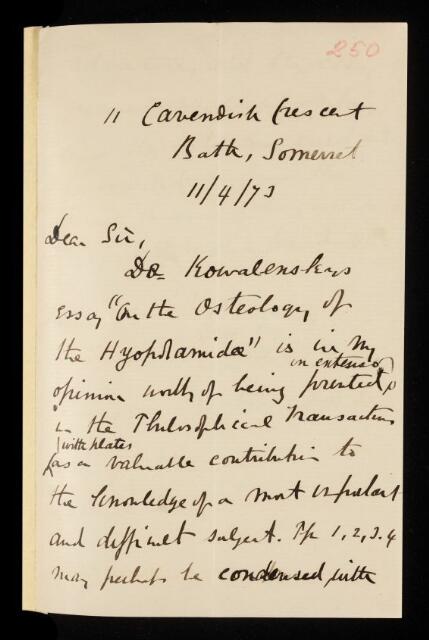 250
11 Cavendish Crescent
Bath, Somerset
11/4/73
Dear Sir,
Dr. Kowalenskys
essay "On the Osteology of
the Hyopotamidæ" is in my
in extenso
opinion worth of being printed
in the Philosophical Transactions
with plates
as a valuable contribution to
the knowledge of a most important
and difficult subject. Pp 1, 2, 3, 4
may perhaps be condensed with